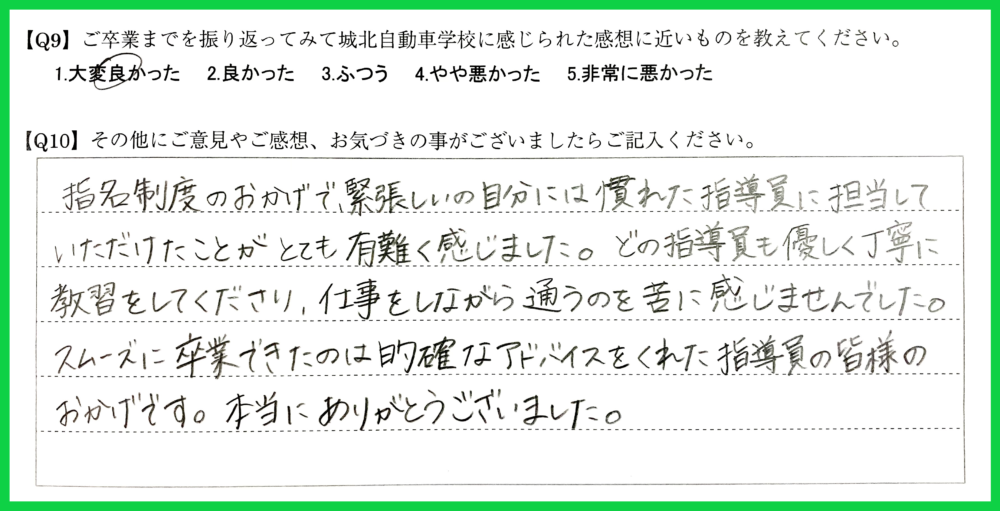 【Q9】ご卒業までを振り返ってみて城北自動車学校に感じられた感想に近いものを教えてください。
1.大変良かった 2.良かった 3.ふつう 4.やや悪かった 5.非常に悪かった
【Q10】その他にご意見やご感想、お気づきの事がございましたらご記入ください。
指名制度のおかげで、緊張しいの自分には慣れた指導員に担当して
いただけたことがとても有難く感じました。どの指導員も優しく丁寧に
教習をしてくださり、仕事をしながら通うのを苦に感じませんでした。
スムーズに卒業できたのは的確なアドバイスをくれた指導員の皆様の
おかげです。本当にありがとうございました。